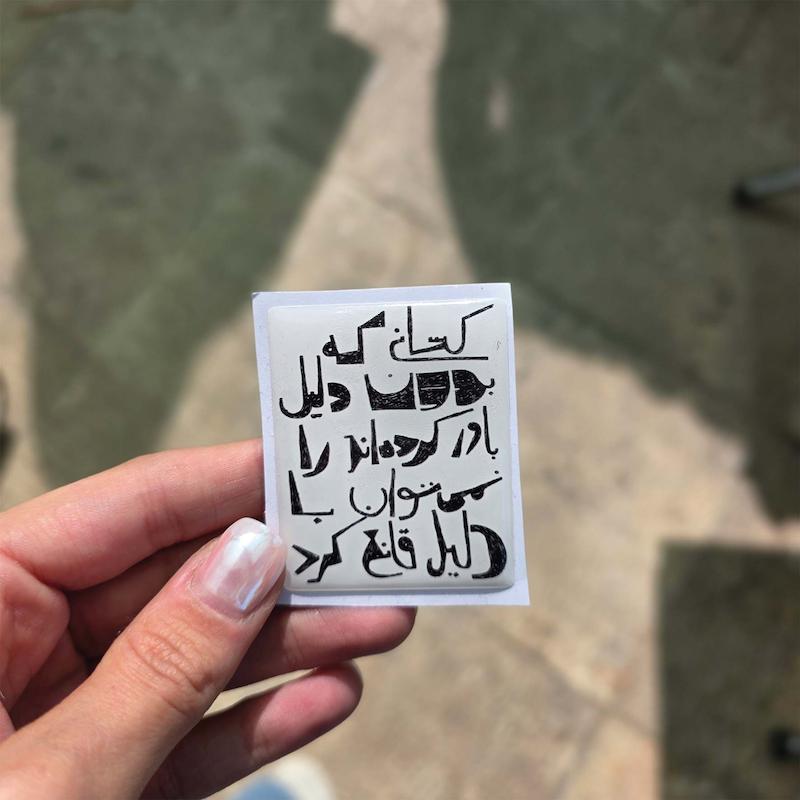 کسانی که
بدون دلیل
باور کرده‌اند را
نمی‌توان با
دلیل قانع کرد